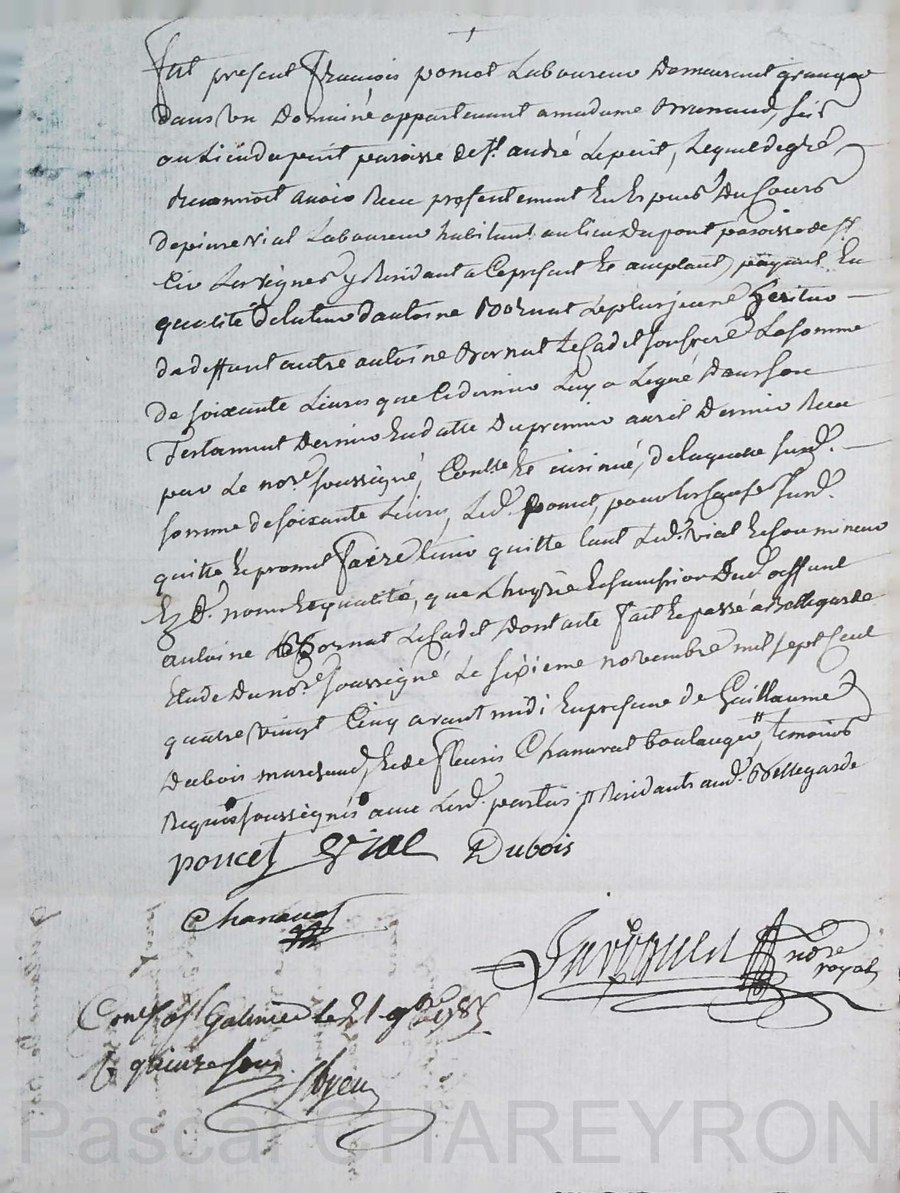 Fut present François poncet Laboureur Demeurant granger
dans un Domaine appartenant a madame sis
au Lieu paroisse de St. andré Le puit, Lequel de gré
Reconnoit avoir Reçu presentement En Espèces Du Cours
de pierre vial Laboureur habitant au lieu Du pont paroisse de St
Cir Les vignes y Residant a Ce present Et acceptant, payant En
qualité de tuteur d'antoine Bornat Le plus jeune heritier
de deffunt autre antoine Bornat Le Cadet son frere La somme
de soixante Livres que Ce dernier Luy a Legué Dans son
Testament Dernier En datte Du premier avril Dernier Reçu
par Le nore. soussigné, Contlé. Et insinué, de laquelle susd.
somme de soixante Livres, Led. poncet, pour les Causes susd.
quitte Et promet faire tenir quitte tant Led. vial Et son mineur
Esd. nom Et qualité, que L'hoyrie Et succession Dud. deffunt
antoine Bornat Le Cadet Dont acte fait Et passé a Bellegarde
Etude Du nore. soussigné Le sixieme novembre mil sept Cent
quatre vingt Cinq avant midi En presence de Guillaume
Dubois marchand, Et de Fleuris Chanavat boulanger, temoins
Requis soussignés avec Lesd. parties Residants aud. Bellegarde
poncet vial Dubois
Chanavat
nore
royal
Conté. a St Galmier le 21 9bre 1785
R quinze sous
Pascal CHAREYRON